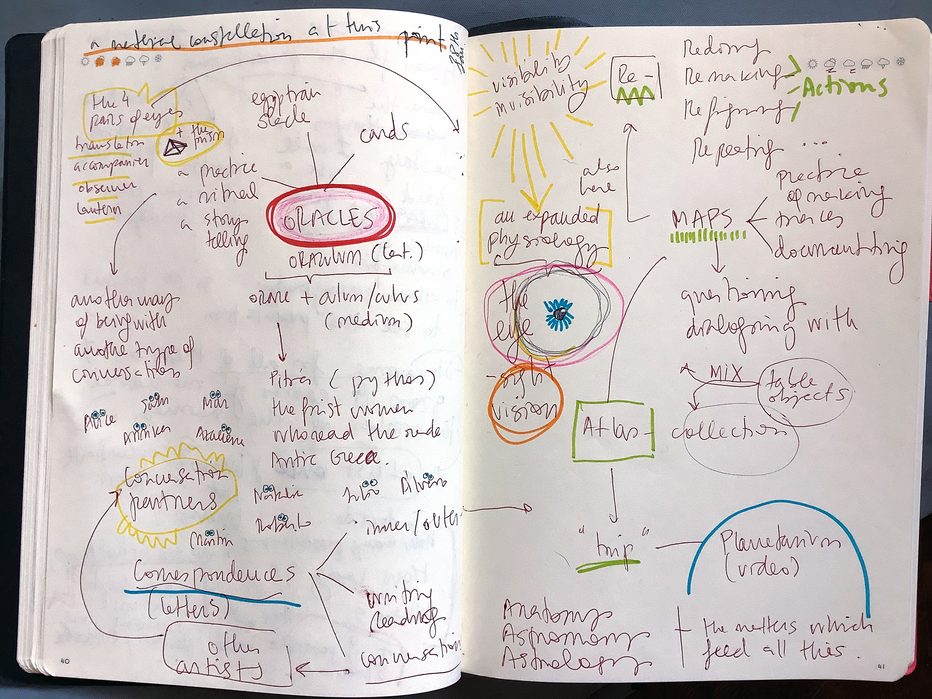 a material constellation at this point
the 4
pairs of eyes
+ the
prism
translator
accompanier
observer
lantern
egyptian
stacle
cards
a practice
a ritual
a story
telling
ORACLES
ORACULUM (Lat.)
orare + culum/culus
(medium)
another way
of being with
another type of
conversations
Pitiás (pythos)
the first women
who read the
Antic Greece.
Alice
Mar
Annika
Azalina
Conversation
partners
Natalia
Julio
Silvana
Roberto
Martin
inner/outer
Correspondences
(letters)
writing
reading
conversation
other
artists
40
visibility
invisibility
Re-
Redoing
Remaking
Refiguring
Repeating ...
Actions
also
here
an expanded
physiology
MAPS
practice
of making
traces
documenting
the
eye
-sight
vision
questioning
dialoging with
MIX
table
objects
Atlas-
collection
"trip"
Planetarium
(video)
Anatomy
Astronomy
Astrology
+ the matters which
feed all this.
41